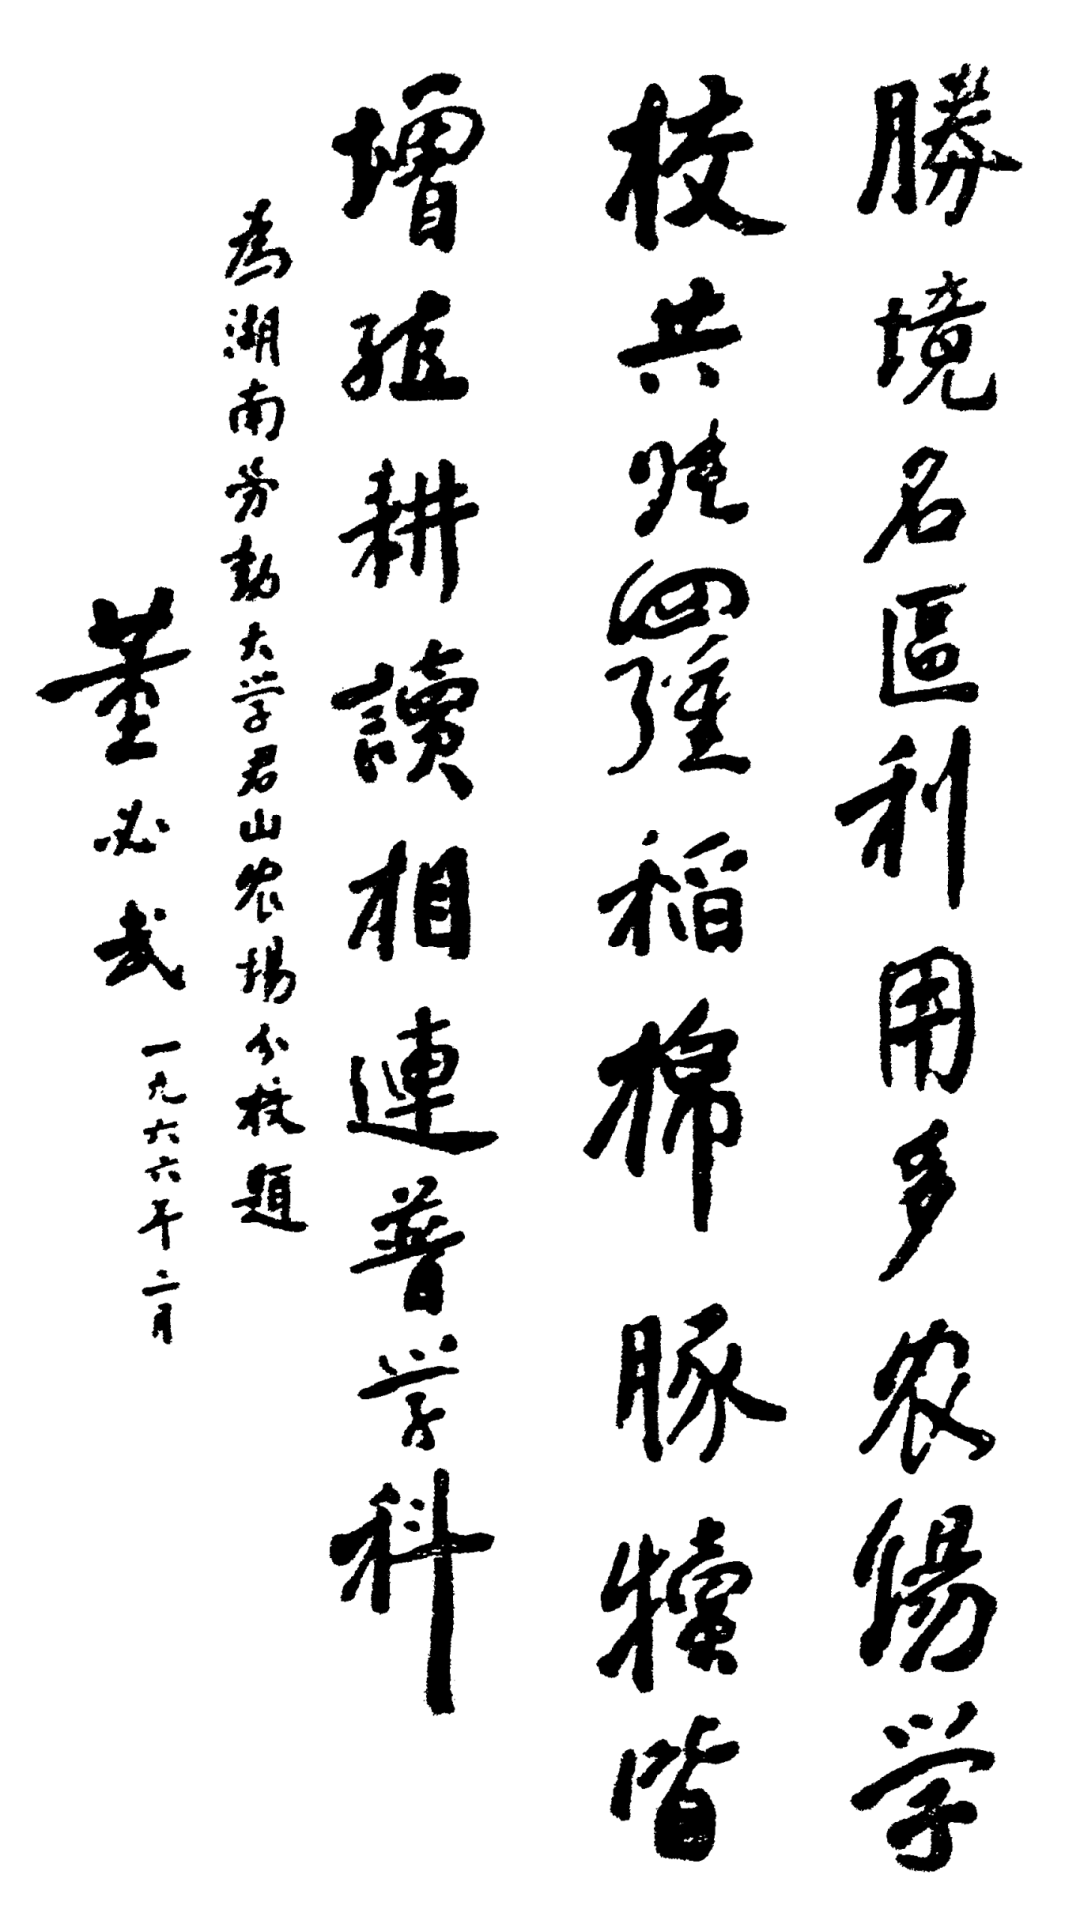 勝境名區利用多农場学
校共羅稻棉豚犢皆
增殖耕讀相連普学科
為湖南劳動大学君山农場分校題
董必武 一九六六年二月